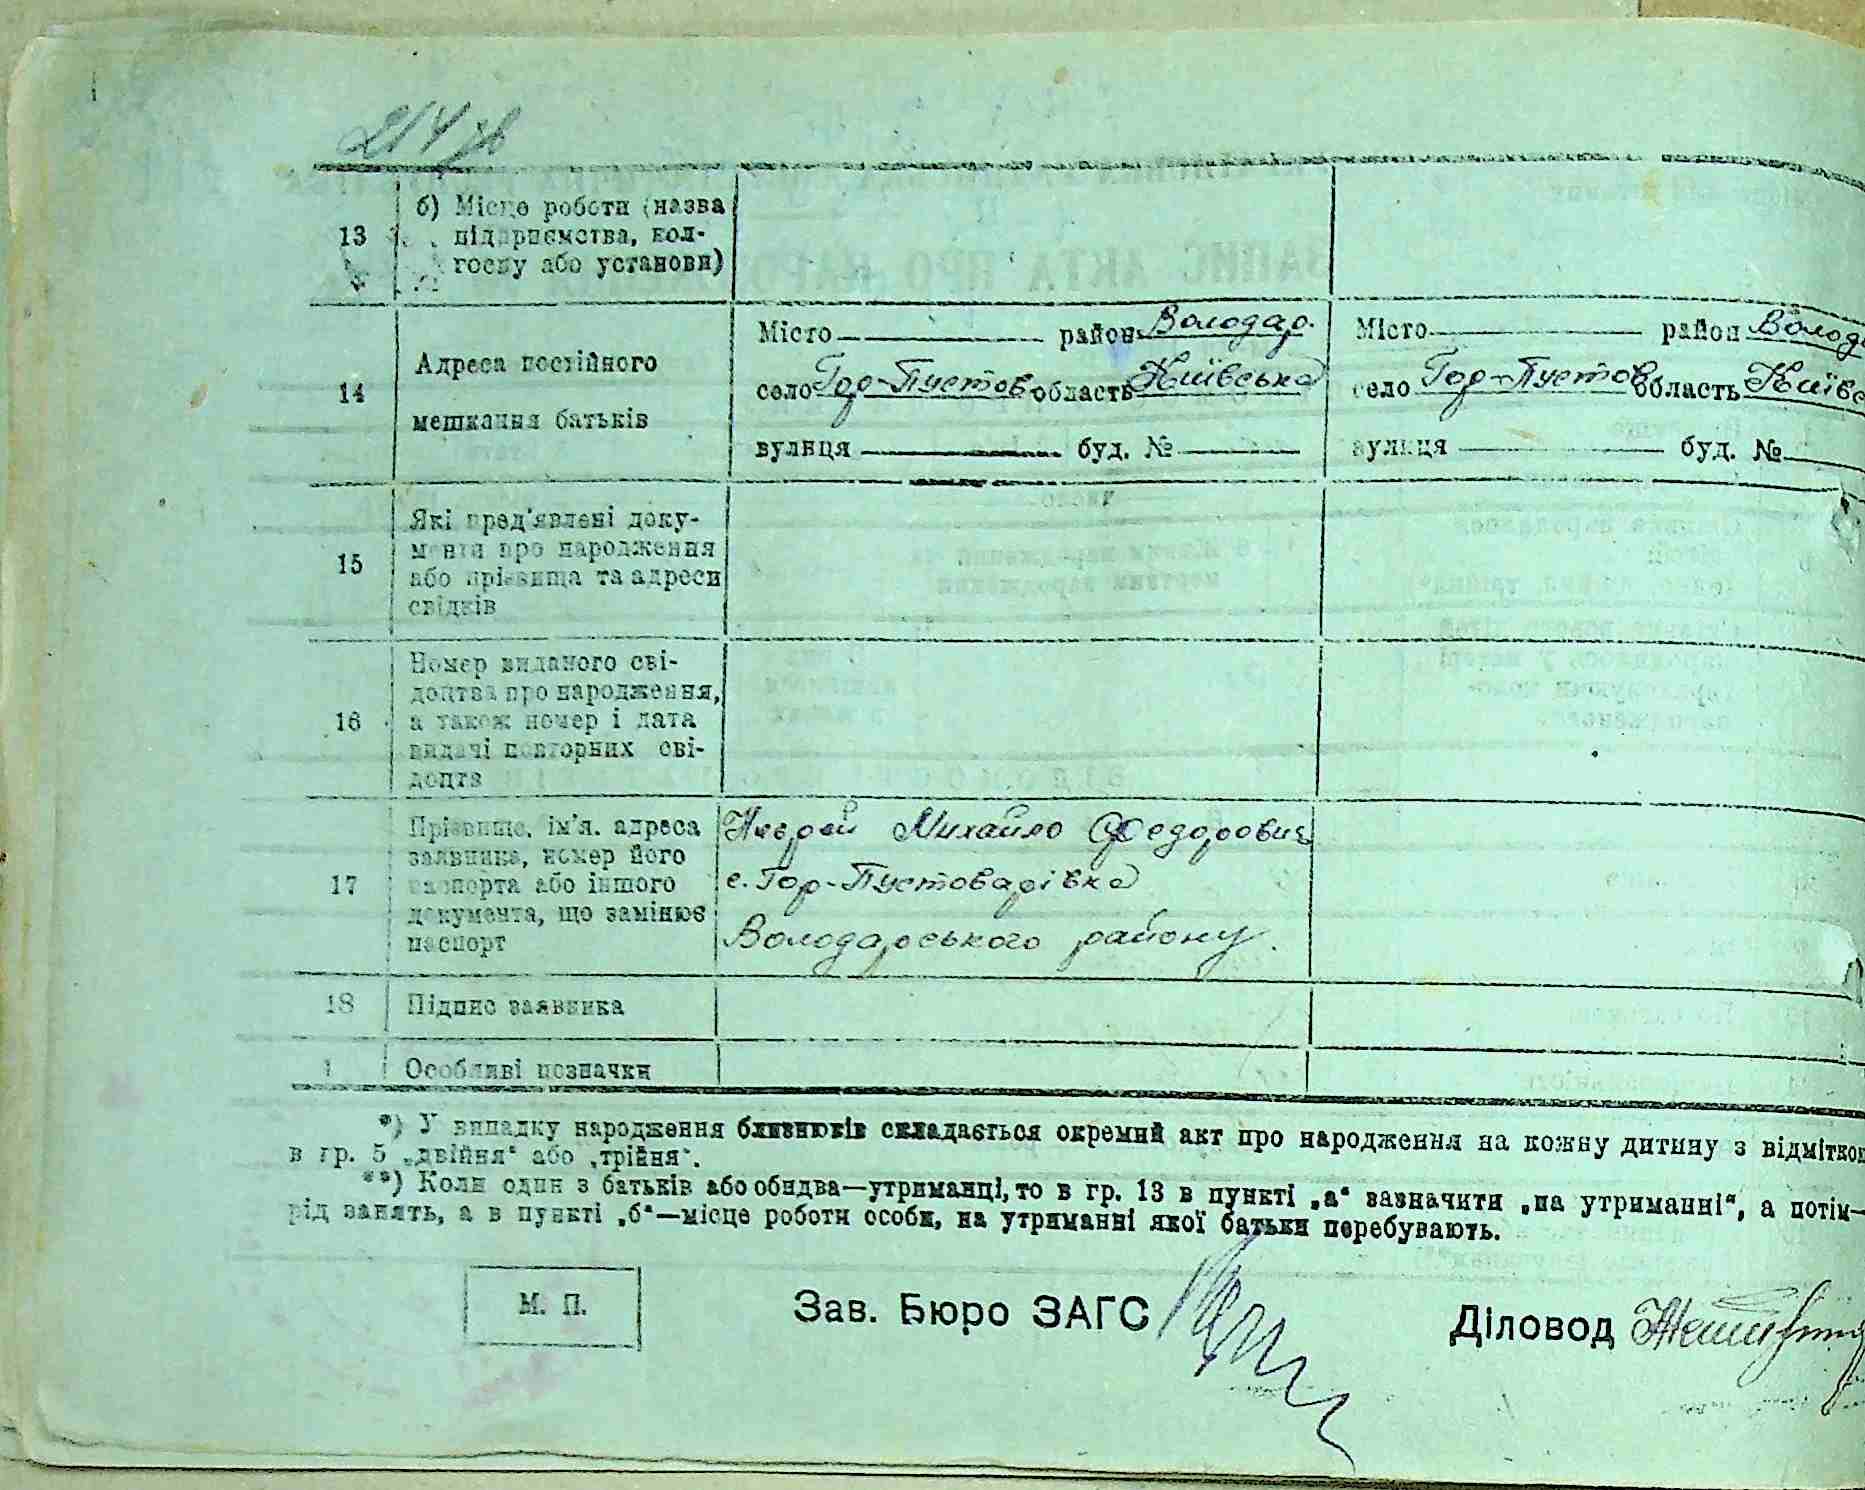 214 зв
13 б) Місце роботи (назва
підприємства, кол-
госпу або установи)
Місто район Володар. Місто район Волод
14 Адреса постійного
село Гор-Пустов область Київська село Гор-Пустов область Київс
мешкання батьків
вулиця буд. № вулиця буд. №
Які пред'явлені доку-
менти про народження
15 або прізвища та адреси
свідків
Номер виданого сві-
доцтва про народження,
16 а також номер і дата
видачі повторних сві-
доцтв
Прізвище, ім'я, адреса Михайло Федорович
заявника, номер його
17 паспорта або іншого с. Гор-Пустоварівка
документа, що замінює
паспорт Володарського району.
18 Підпис заявника
1 Особливі позначки
*) У випадку народження близнюків складається окремий акт про народження на кожну дитину з відміткою
в гр. 5 „двійня“ або „трійня“.
**) Коли один з батьків або обидва—утриманці, то в гр. 13 в пункті „а“ зазначити „на утриманні“, а потім—
рід занять, а в пункті „б“—місце роботи особи, на утриманні якої батьки перебувають.
М. П. Зав. Бюро ЗАГС Діловод